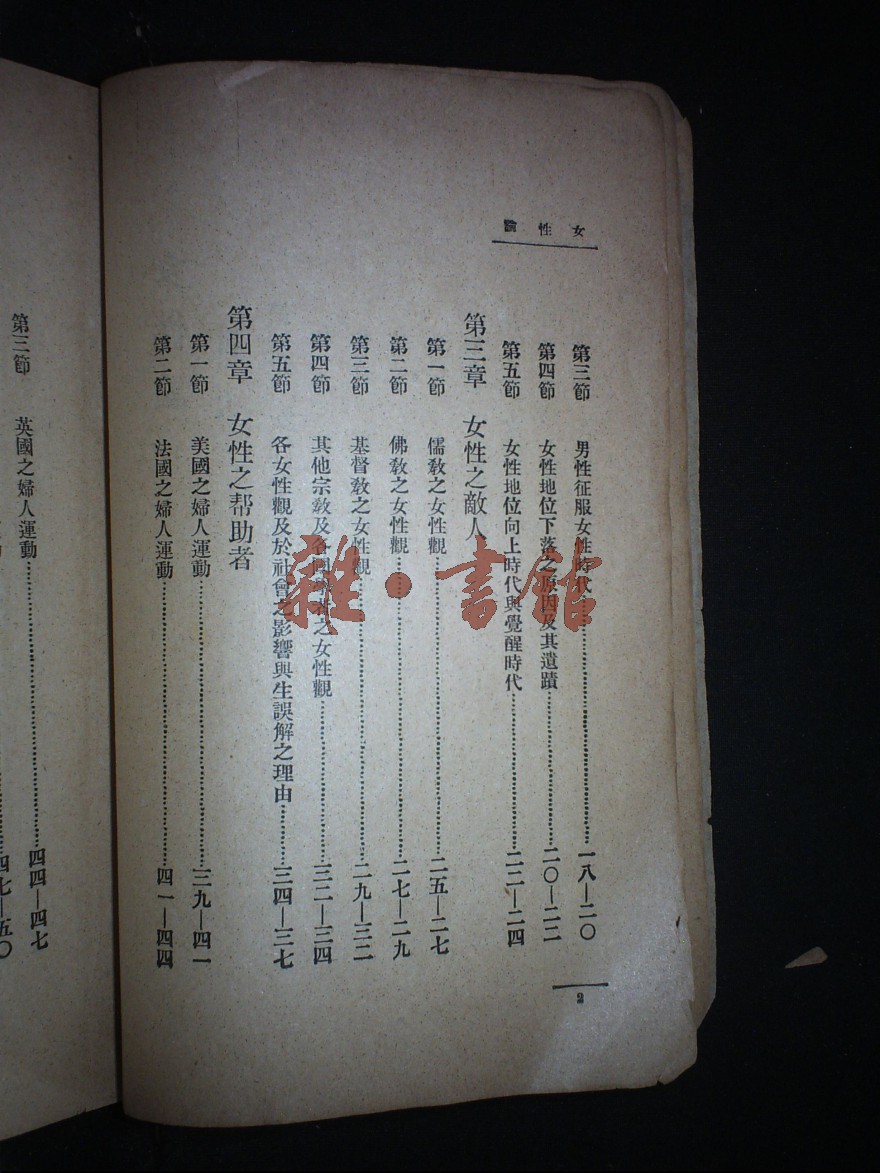 女性論
第三節 男性征服女性時代……一八—二〇
第四節 女性地位下落之原因及其遺蹟……二〇—二二
第五節 女性地位向上時代與覺醒時代……二二—二四
第三章 女性之敵人
第一節 儒教之女性觀……二五—二七
第二節 佛教之女性觀……二七—二九
第三節 基督教之女性觀……二九—三二
第四節 其他宗教及各國學者之女性觀……三二—三四
第五節 各女性觀及於社會之影響與生誤解之理由……三四—三七
第四章 女性之帮助者
第一節 美國之婦人運動……三九—四一
第二節 法國之婦人運動……四一—四四
2
第三節 英國之婦人運動……四四—四七
四七—五〇
雜·書館